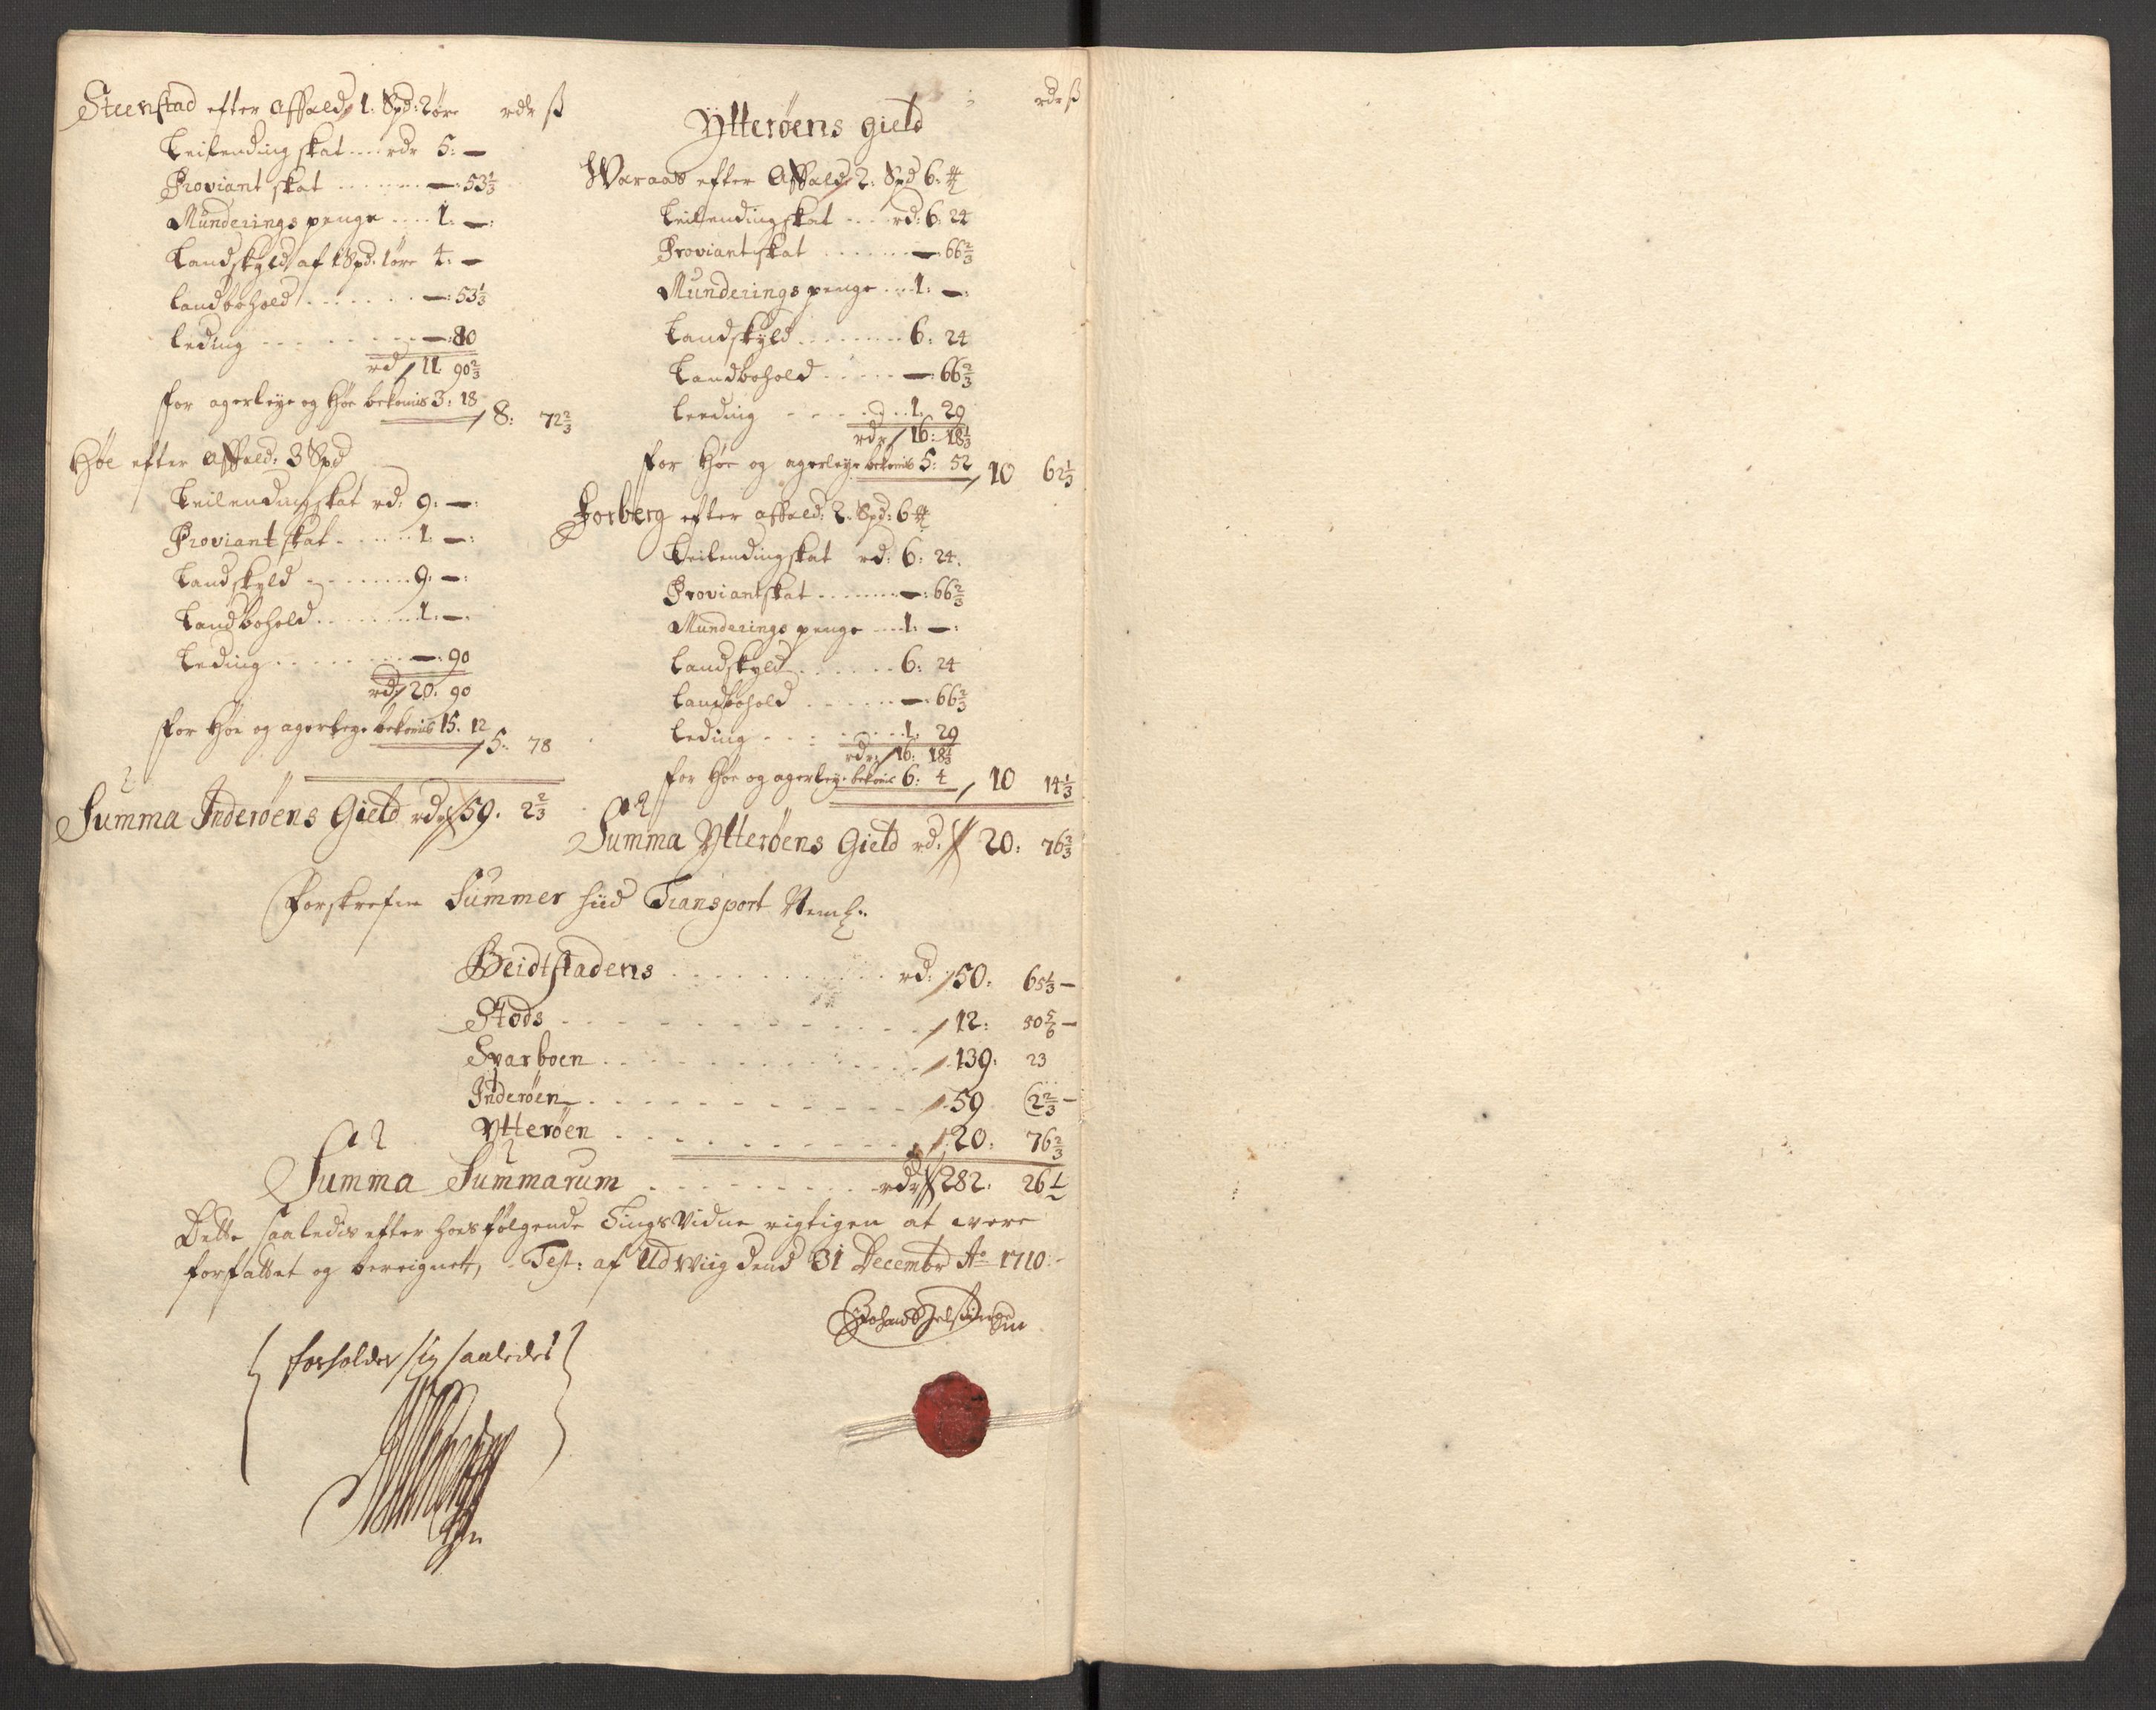 Steenstad efter Affald 1: Spd: 2 øre rdr ß
Leilending skat .... rdr 5: —
Proviant skat ........ —: 53 1/3
Munderings penge .... 1: —:
Landskyld af 1 Spd: 1 øre 4: —
landbohold ........ —: 53 1/3
leding ........ —: 80
rd 11 90 2/3
for agerleye og Høe bekomis 3: 18
8: 72 2/3
Høe efter Affald: 3 Spd
Leilendingskat rd: 9: —:
Proviant skat ..... 1: —:
Landskyld ........ 9: —:
Landbohold ........ 1: —:
Leding ........ —: 90
rd 20: 90
for Høe og agerleye bekomis 15. 12
5: 78
Summa Inderøens Gield rdr 59. 2 2/3
rdr ß
Ytterøens gield
Waraas efter Affald 2: Spd 6: ℔
Leilendingskat ... rd: 6: 24
Proviantskat ...... —: 66 2/3
Munderings penge ... 1: —:
Landskyld ....... 6: 24
Landbohold ..... —: 66 2/3
Leeding ..... 1: 29
rdr 16: 18 1/3
for Høe og agerleye bekomis 5: 52 10 62 1/3
Forberg efter affald: 2. Spd: 6 ℔
Leilendingskat rd: 6: 24.
Proviantskat ....... —: 66 2/3
Munderings penge ... 1: —:
Landskyld ...... 6: 24
Landbohold ...... —: 66 2/3
Leding ...... 1: 29
rdr 16: 18 1/3
for Høe og agerleye bekomis 6: 4 10 14 1/3
Summa Ytterøens Gield rd: 20: 76 2/3
Forskrefne Summer hiid Transport Neml:
Beidtstadens .......... rd: 50: 65 1/3 —
Stods ............ 12: 50 5/6 —
Sparboen ............ 139: 23
Inderøen ............ 59 2 2/3 —
Ytterøen ............ 20: 76 2/3
Summa Summarum ......... rdr 282: 26 1/2
Dette saaledis efter hoesfølgende Tings Vidne rigtigen at were
forfattet og beregnet, Test: af Udwiig dend 31 Decembr Ao 1710:
forholder sig saaledes